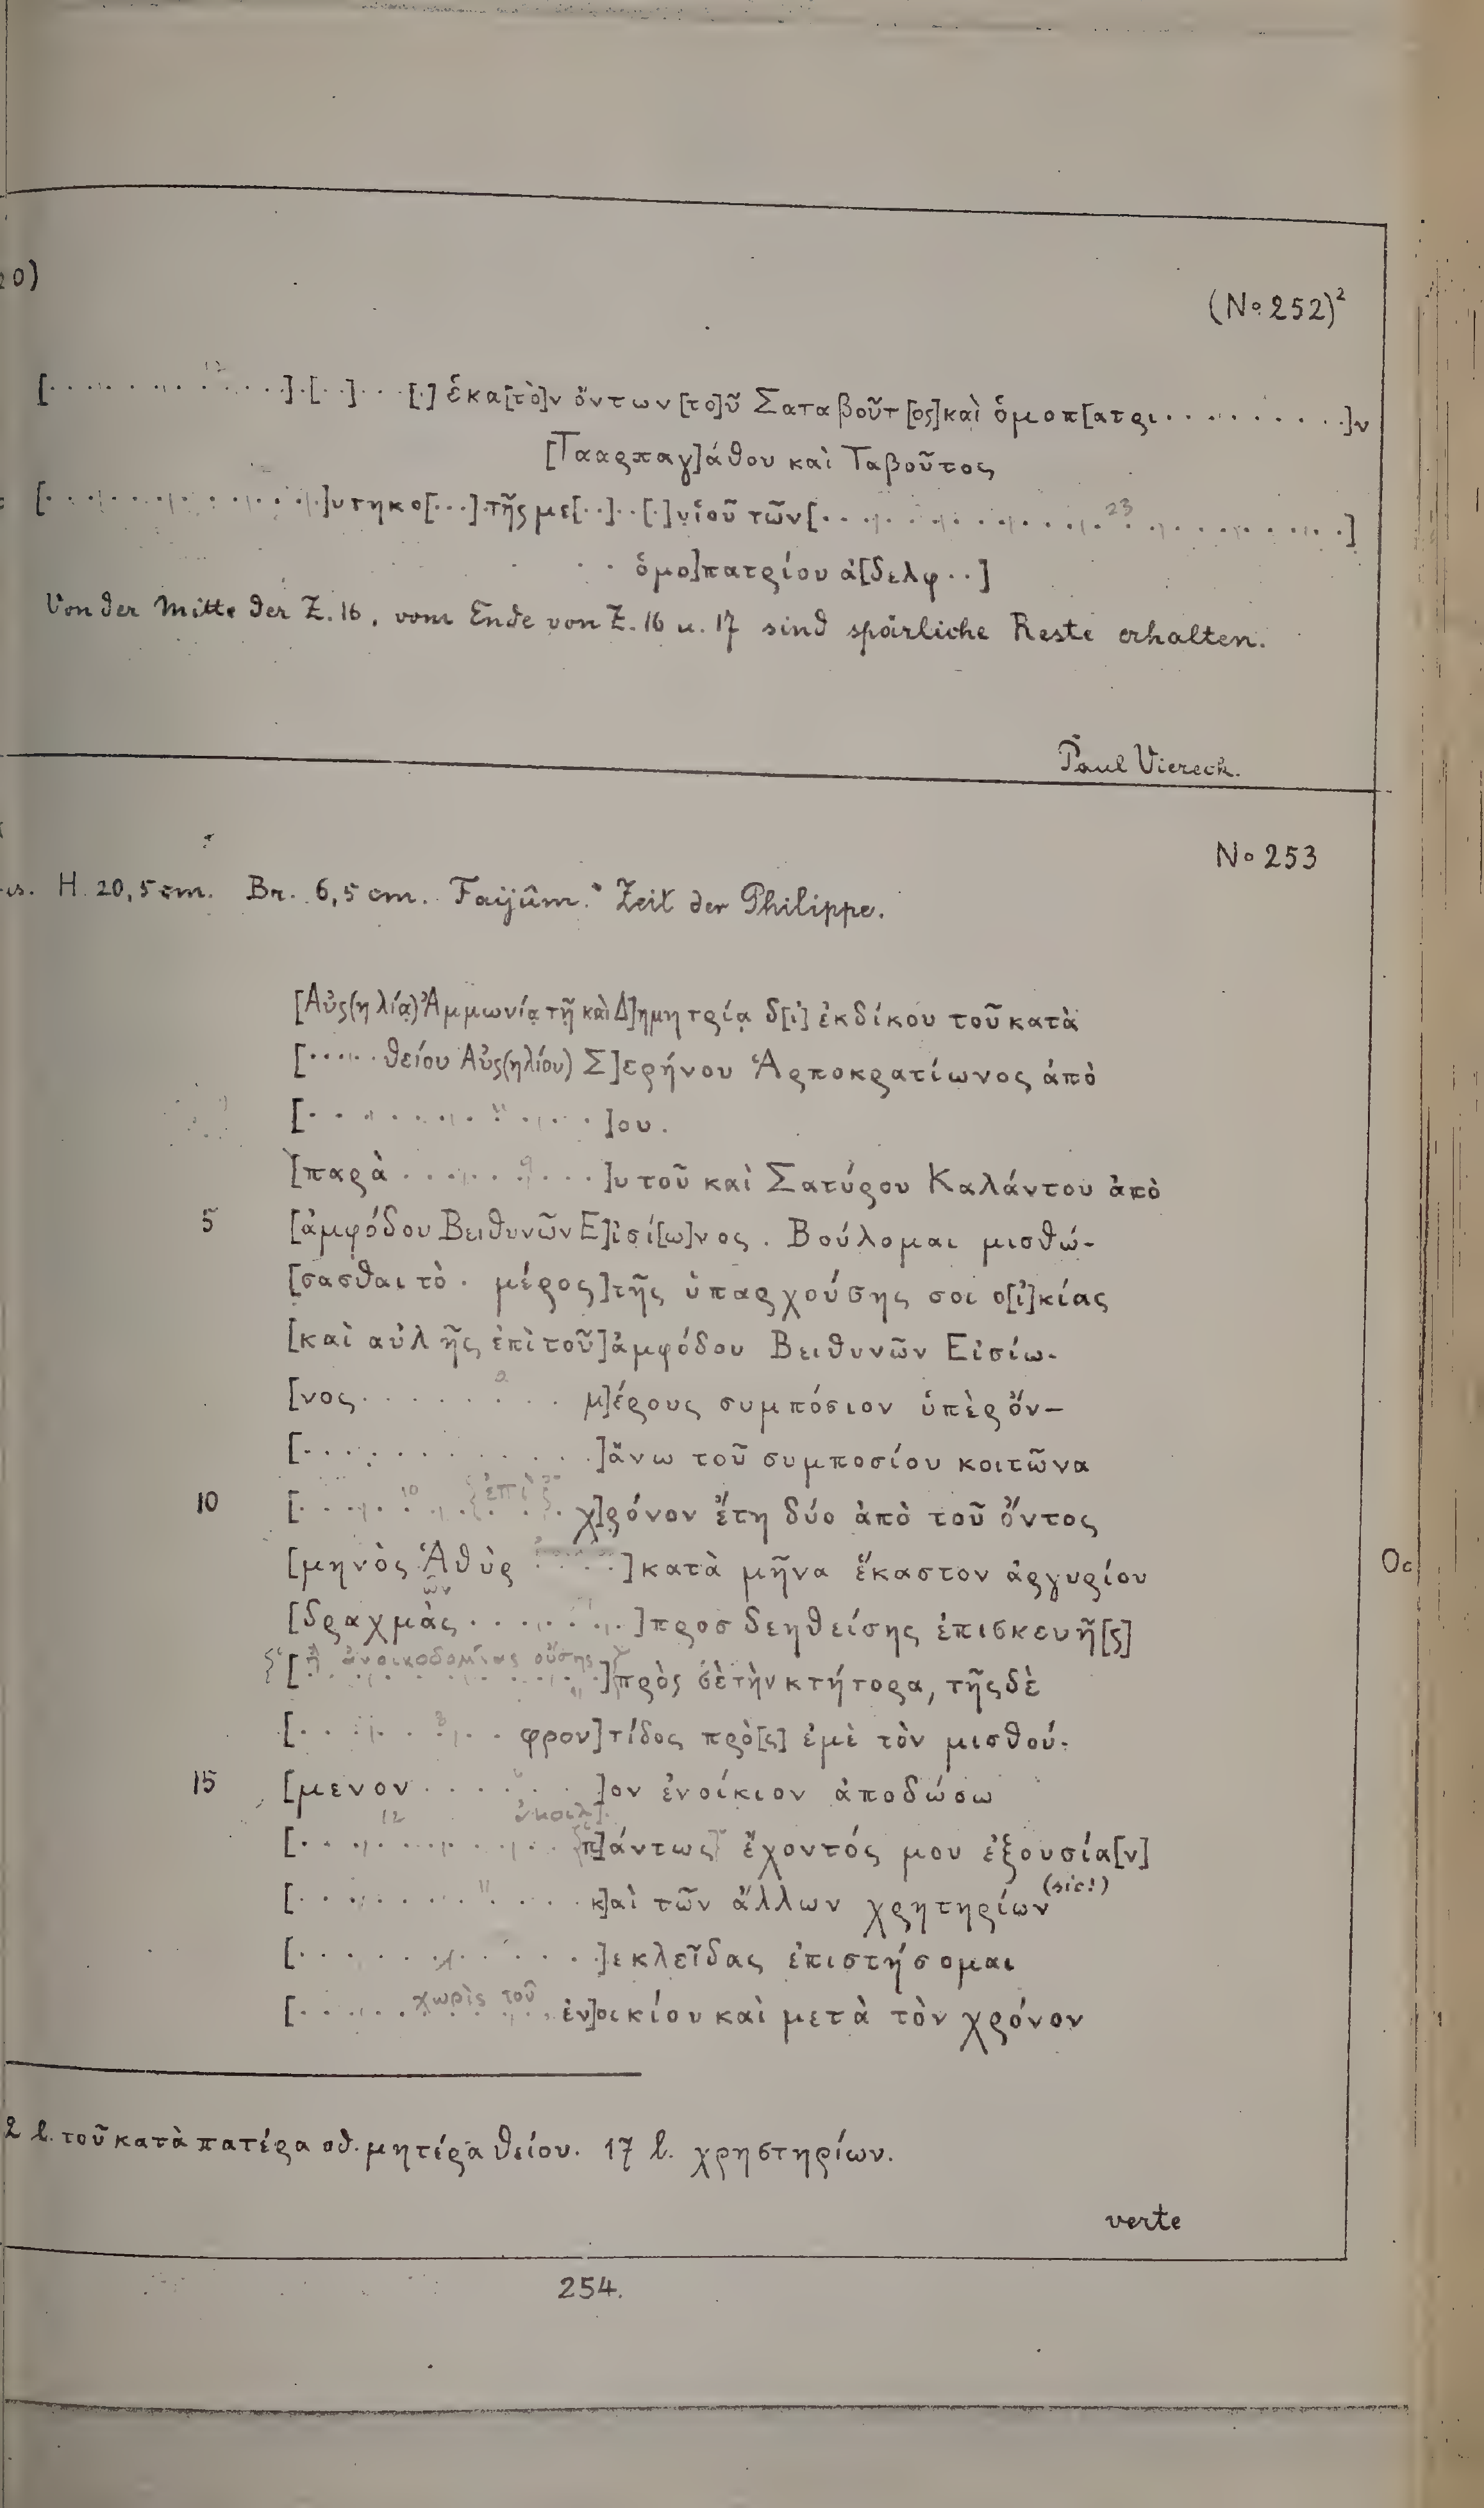 20)
(No 252)²
[· · · · · · · · · · · ·]·[··]···[·] ἑκα[τὸ]ν ὄντων [το]ῦ Σαταβοῦτ[ος] καὶ ὁμοπ[ατρι· · · · · · · · · ·]ν
[Τααρπαγ]άθου καὶ Ταβοῦτος
[· · · · · · · · · · · ·]ντηκο[···]·τῆς με[··]··[·]υἱοῦ τῶν [· · · · · · · · · · · · · · · · · · · · · · ·]
· · ὁμο]πατρίου ἀ[δελφ··]
Von der Mitte der Z. 16, vom Ende von Z. 16 u. 17 sind spärliche Reste erhalten.
Paul Viereck.
No 253
H. 20,5 cm. Br. 6,5 cm. Faijûm. Zeit der Philippe.
[Αὐρ(ηλίᾳ) Ἀμμωνίᾳ τῇ καὶ Δ]ημητρίᾳ δ[ι] ἐκδίκου τοῦ κατὰ
[······θείου Αὐρ(ηλίου) Σ]ερήνου Ἁρποκρατίωνος ἀπὸ
[· · · · · · · · · · ·]ου.
[παρὰ · · · · · · · · ·]υ τοῦ καὶ Σατύρου Καλάντου ἀπὸ
5 [ἀμφόδου Βειθυνῶν Ε]ἰσί[ω]νος. Βούλομαι μισθώ-
[σασθαι τὸ · μέρος] τῆς ὑπαρχούσης σοι ο[ἰ]κίας
[καὶ αὐλῆς ἐπὶ τοῦ] ἀμφόδου Βειθυνῶν Εἰσίω-
[νος · · · · · · · · · μ]έρους συμπόσιον ὑπὲρ ὄν-
[· · · · · · · · · · · ·] ἄνω τοῦ συμποσίου κοιτῶνα
10 [· · · · · · · · · · ἐπὶ χ]ρόνον ἔτη δύο ἀπὸ τοῦ ὄντος
[μηνὸς Ἁθὺρ · · · · ·] κατὰ μῆνα ἕκαστον ἀργυρίου
[δραχμὰς · · · · · · ·] προσδεηθείσης ἐπισκευῆ[ς]
[ἢ ἀνοικοδομίας οὔσης] πρὸς σὲ τὴν κτήτορα, τῆς δὲ
[· · · · · · · · φρον]τίδος πρὸ[ς] ἐμὲ τὸν μισθού-
15 [μενον · · · · · ·]ον ἐνοίκιον ἀποδώσω
[· · · · · · · · · · · · π]άντως ἔχοντός μου ἐξουσία[ν]
[· · · · · · · · · · · κ]αὶ τῶν ἄλλων χρητηρίων (sic!)
[· · · · · · · · · · · ·]εκλεῖδας ἐπιστήσομαι
[· · · · · · χωρὶς τοῦ ἐν]οικίου καὶ μετὰ τὸν χρόνον
2 l. τοῦ κατὰ πατέρα od. μητέρα θείου. 17 l. χρηστηρίων.
verte
254.